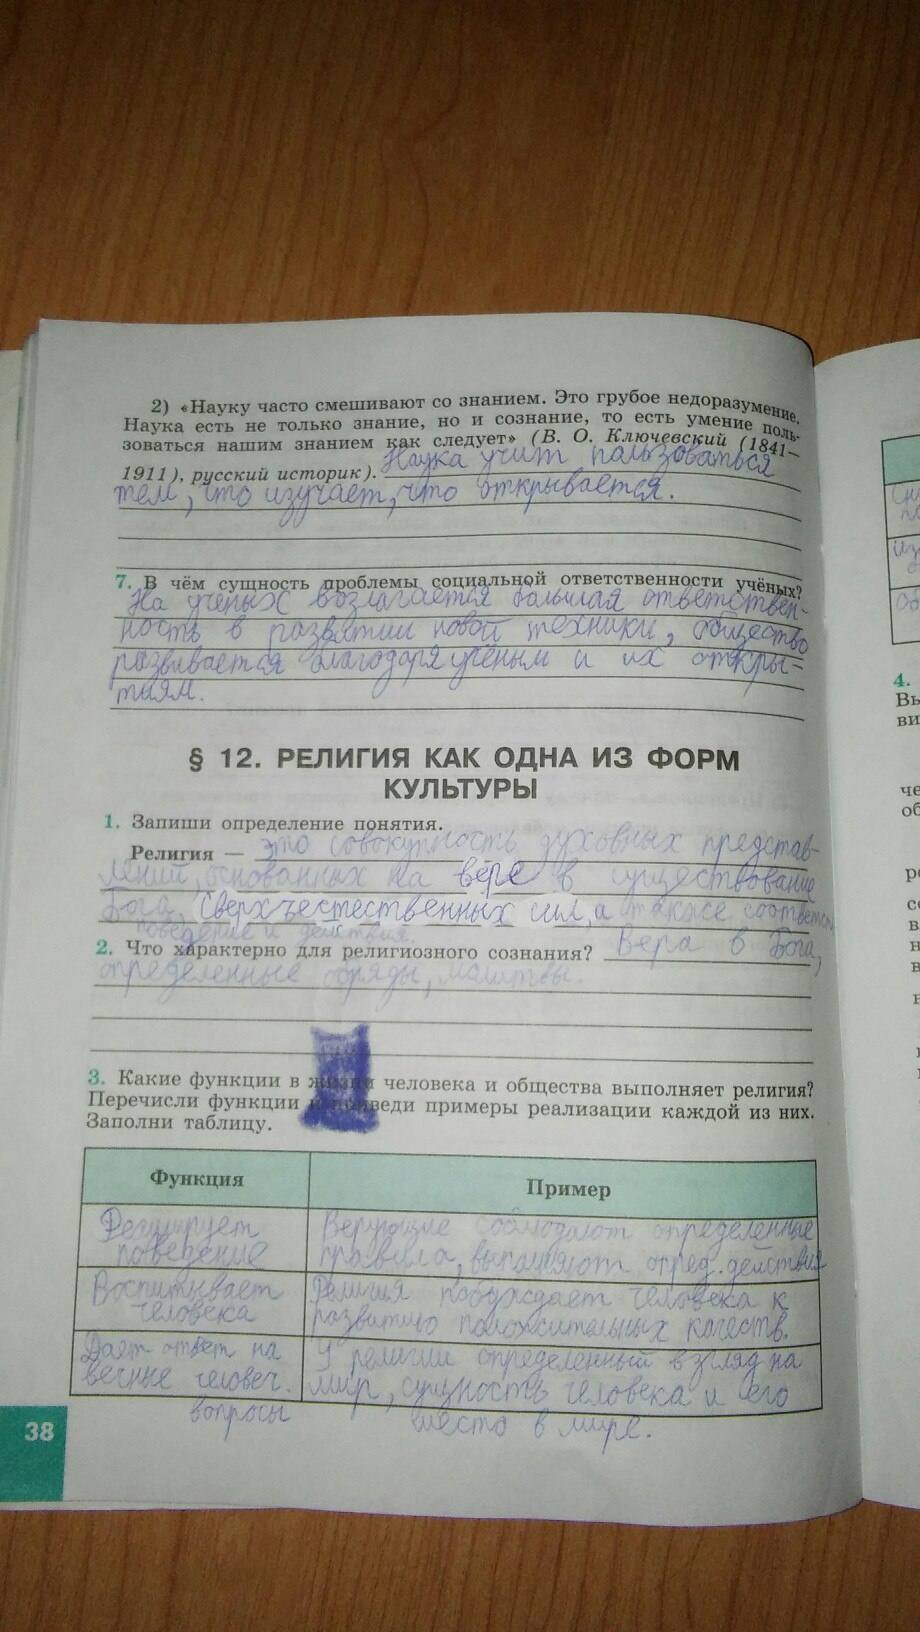 2) «Науку часто смешивают со знанием. Это грубое недоразумение.
Наука есть не только знание, но и сознание, то есть умение поль-
зоваться нашим знанием как следует» (В. О. Ключевский (1841—
1911), русский историк). Наука учит пользоваться
тем, что изучает, что открывается.
7. В чём сущность проблемы социальной ответственности учёных?
На учёных возлагается большая ответствен-
ность в развитии новой техники, общество
развивается благодаря учёным и их откры-
тиям.
§ 12. РЕЛИГИЯ КАК ОДНА ИЗ ФОРМ
КУЛЬТУРЫ
1. Запиши определение понятия.
Религия — это совокупность духовных представ-
лений, основанных на вере в существование
Бога, сверхъестественных сил, а также соответств.
поведение и действия.
2. Что характерно для религиозного сознания? Вера в Бога,
определенные обряды, молитвы.
3. Какие функции в жизни человека и общества выполняет религия?
Перечисли функции и приведи примеры реализации каждой из них.
Заполни таблицу.
Функция
Пример
Регулирует
поведение
Верующие соблюдают определенные
правила, выполняют опред. действия
Воспитывает
человека
Религия побуждает человека к
развитию положительных качеств.
Дает ответ на
вечные человеч.
вопросы
У религии определенный взгляд на
мир, сущность человека и его
место в мире.
38
4.
Вы
ви
че
об